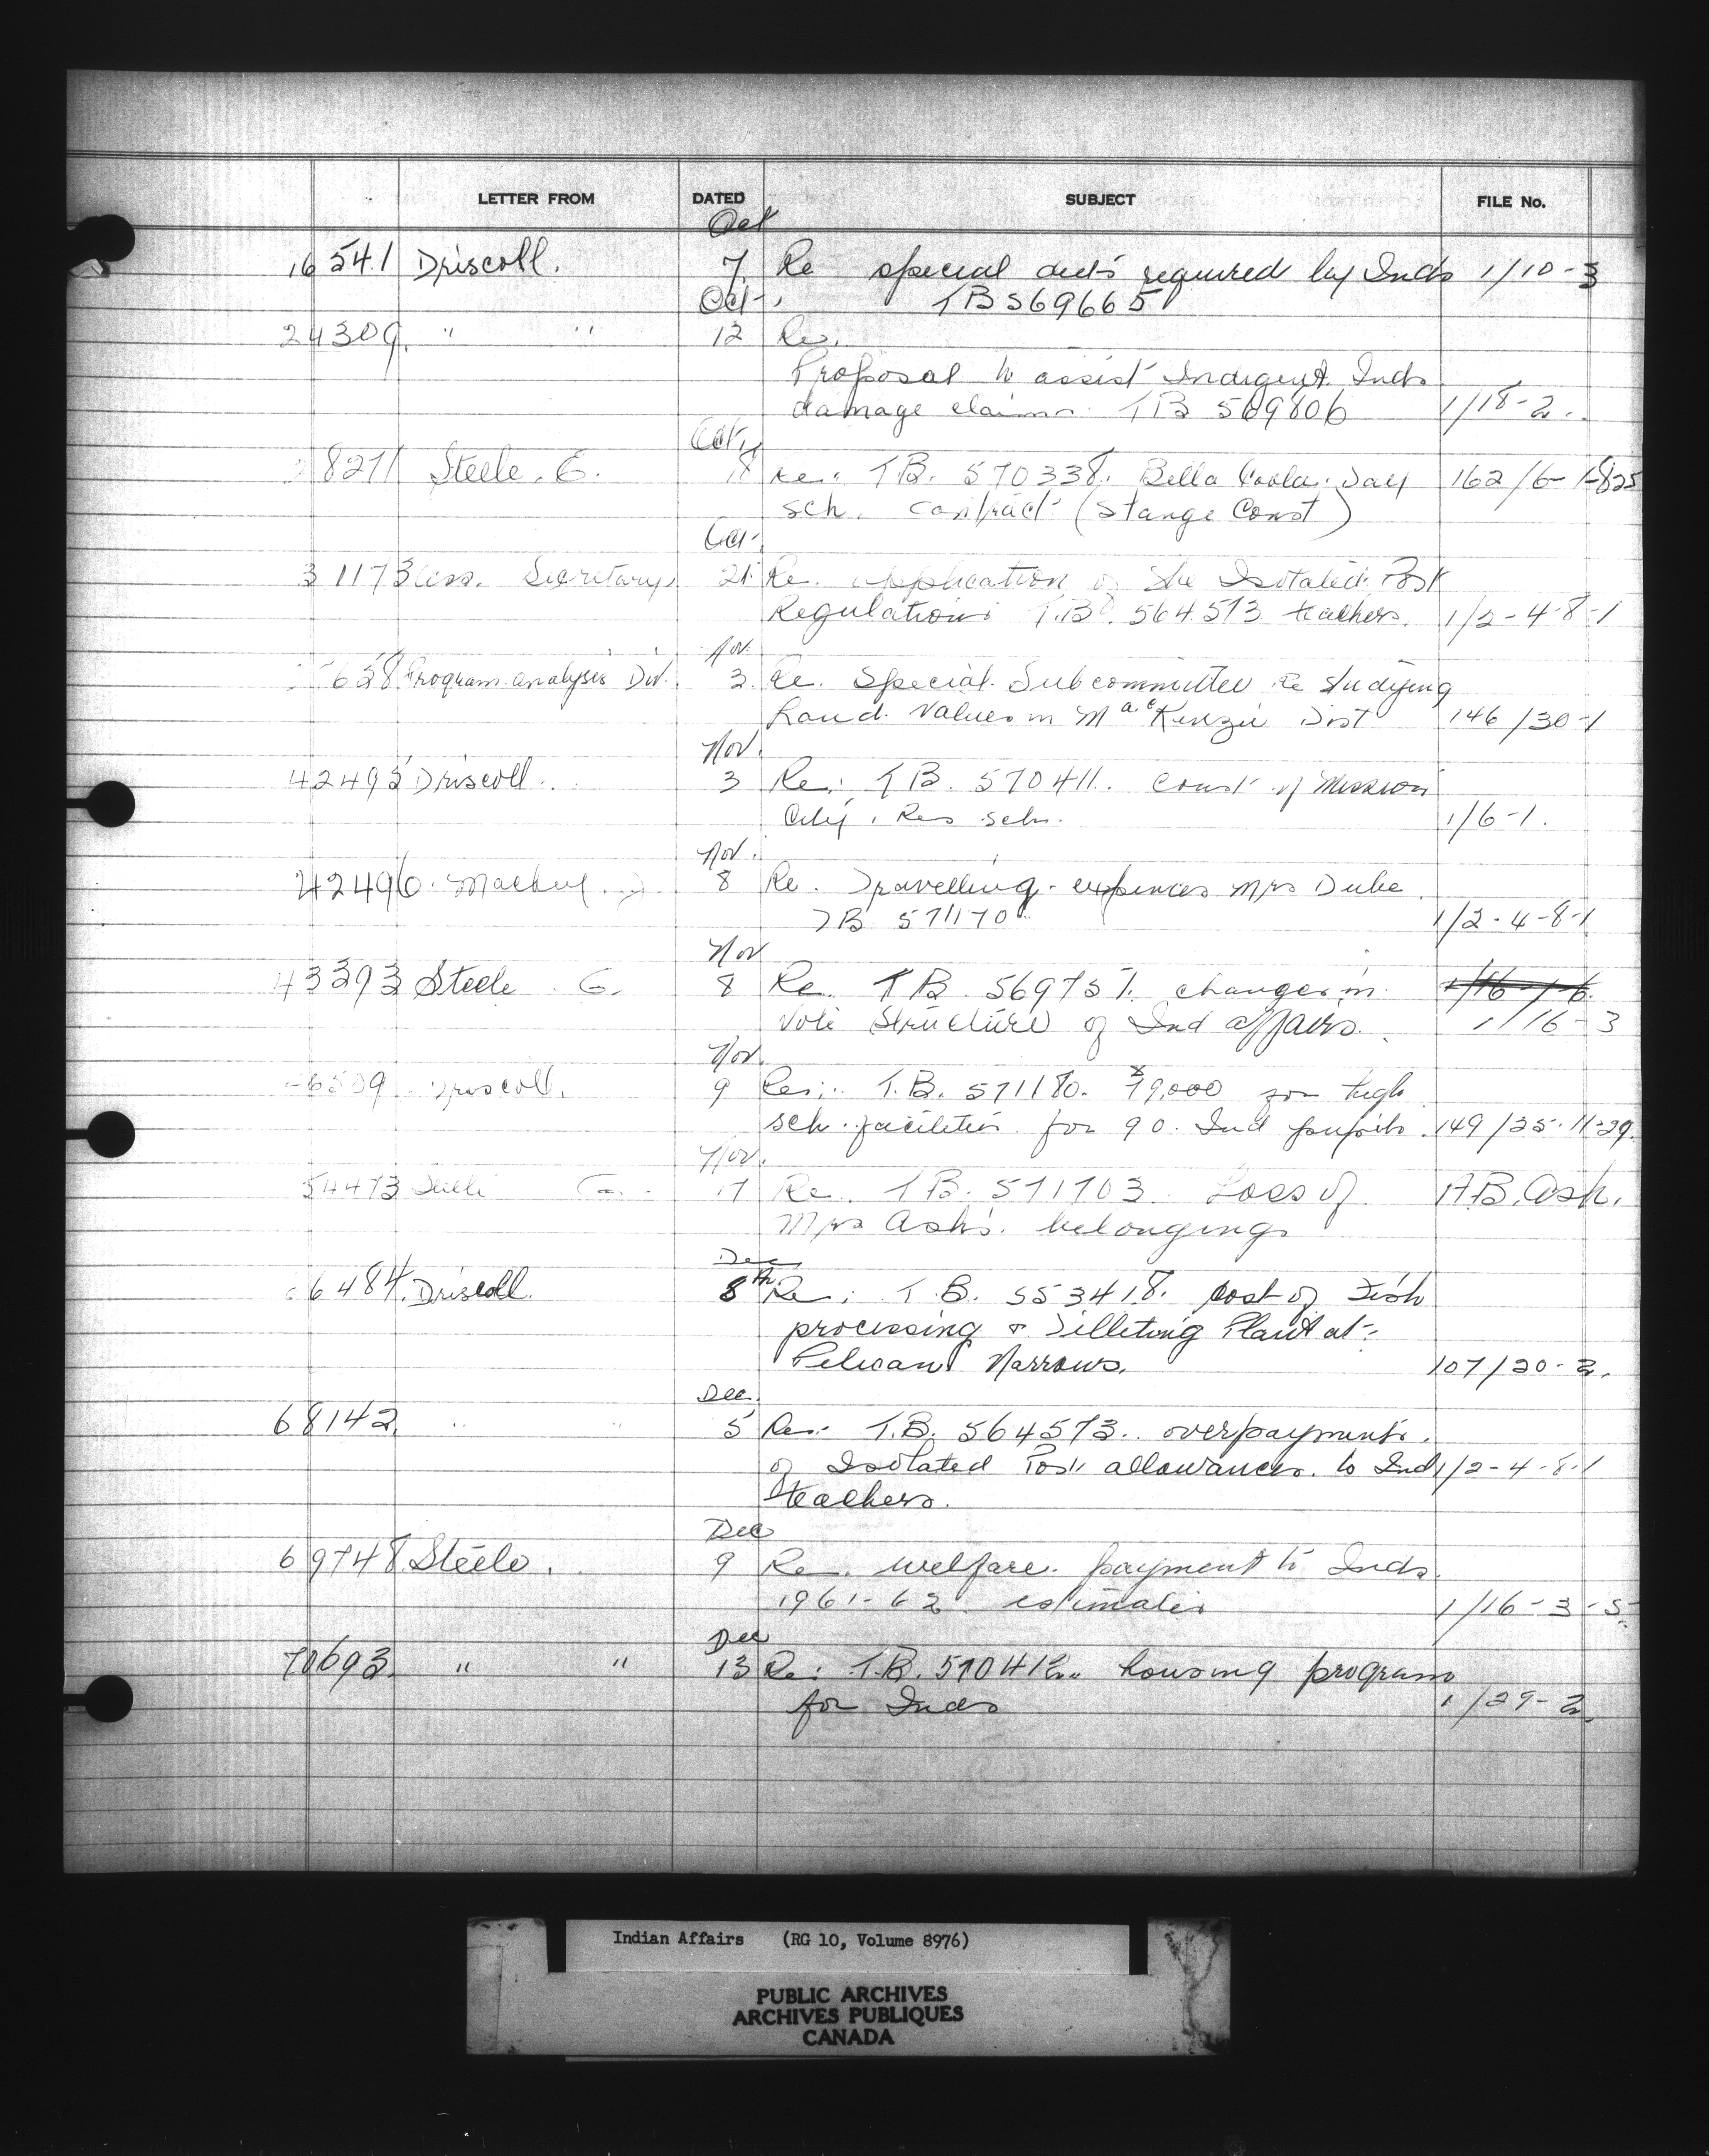 LETTER FROM DATED SUBJECT FILE No.
Oct
16541 Driscoll. 7 Re special diets required by Inds 1/10-3
Oct TB 569665
24309 " " 12 Re.
Proposal to assist Indigent Inds
damage claims TB 569806 1/18-2.
Oct
8271 Steele. G. 18 Re: T.B. 570338. Bella Coola. Day 162/6-1-825
sch. contract (Stange Const)
Oct
31173 Secretary 21 Re. application of the Isolated Post
Regulations T.B. 564573 teachers. 1/2-4-8-1
Nov.
628 Program analysis Div. 3 Re. Special Subcommittee Re studying
Land. Values in MacKenzie Dist 146/30-1
Nov.
42495 Driscoll. 3 Re: T.B. 570411. Const of Mission
City. Res sch. 1/6-1.
Nov.
42496. 8 Re. Travelling expences Mrs Dube
TB 571170 1/2-4-8-1
Nov
43393 Steele G. 8 Re. T.B. 569757. changes in 1/16-1-6.
Vote Structure of Ind affairs. 1/16-3
Nov
6509 Driscoll. 9 Re: T.B. 571180. $79,000 for high
sch. facilities for 90. Ind pupils. 149/25-11-29.
Nov.
54473 Steele G. 17 Re. T.B. 571703. Loss of A.B. Ash.
Mrs Ash's. belongings
Dec
6484. Driscoll. 8th Re: T.B. 553418. Cost of Fish
processing & Filleting Plant at
Pelican Narrows. 107/20-2.
Dec.
68142. " " 5 Re: T.B. 564573.. overpayments.
of Isolated Post allowances. to Ind 1/2-4-8-1
teachers.
Dec
69748 Steele. 9 Re. welfare. payment to Inds.
1961-62 estimates 1/16-3-5
Dec
70693. " " 13 Re: T.B. housing program
for Inds 1/29-2.
Indian Affairs (RG 10, Volume 8976)
PUBLIC ARCHIVES
ARCHIVES PUBLIQUES
CANADA